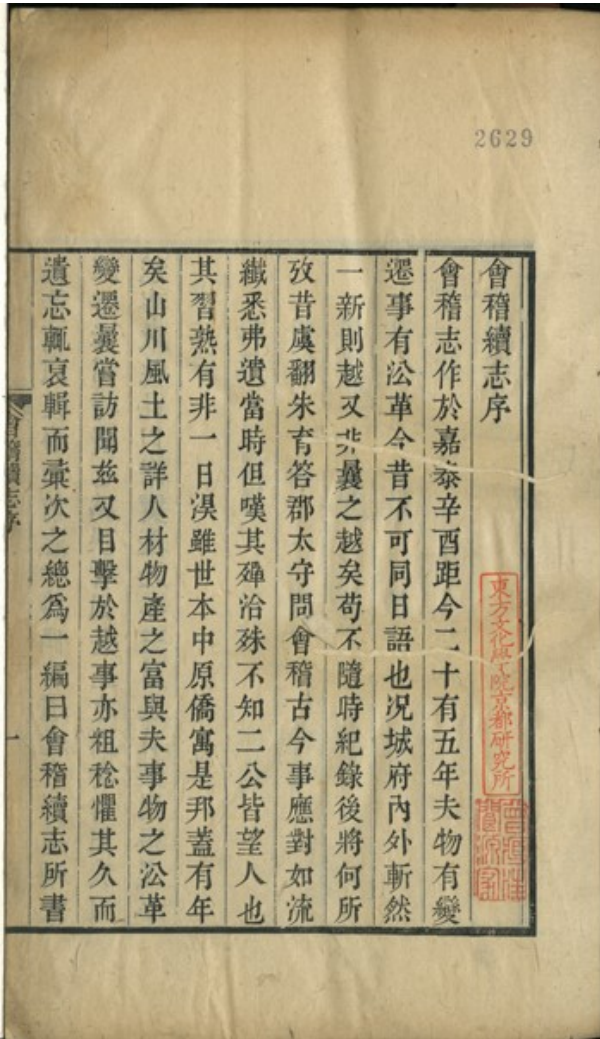 2629
會稽續志序
會稽志作於嘉泰辛酉距今二十有五年夫物有變
遷事有沿革今昔不可同日語也况城府內外斬然
一新則越又非曩之越矣苟不隨時紀錄後將何所
攷昔虞翻朱育答郡太守問會稽古今事應對如流
纖悉弗遺當時但嘆其殫洽殊不知二公皆望人也
其習熟有非一日淏雖世本中原僑寓是邦葢有年
矣山川風土之詳人材物產之富與夫事物之沿革
變遷曩嘗訪聞兹又目擊於越事亦粗稔懼其久而
遺忘輒裒輯而彙次之總爲一編曰會稽續志所書
會稽續志序
一
東方文化學院京都研究所